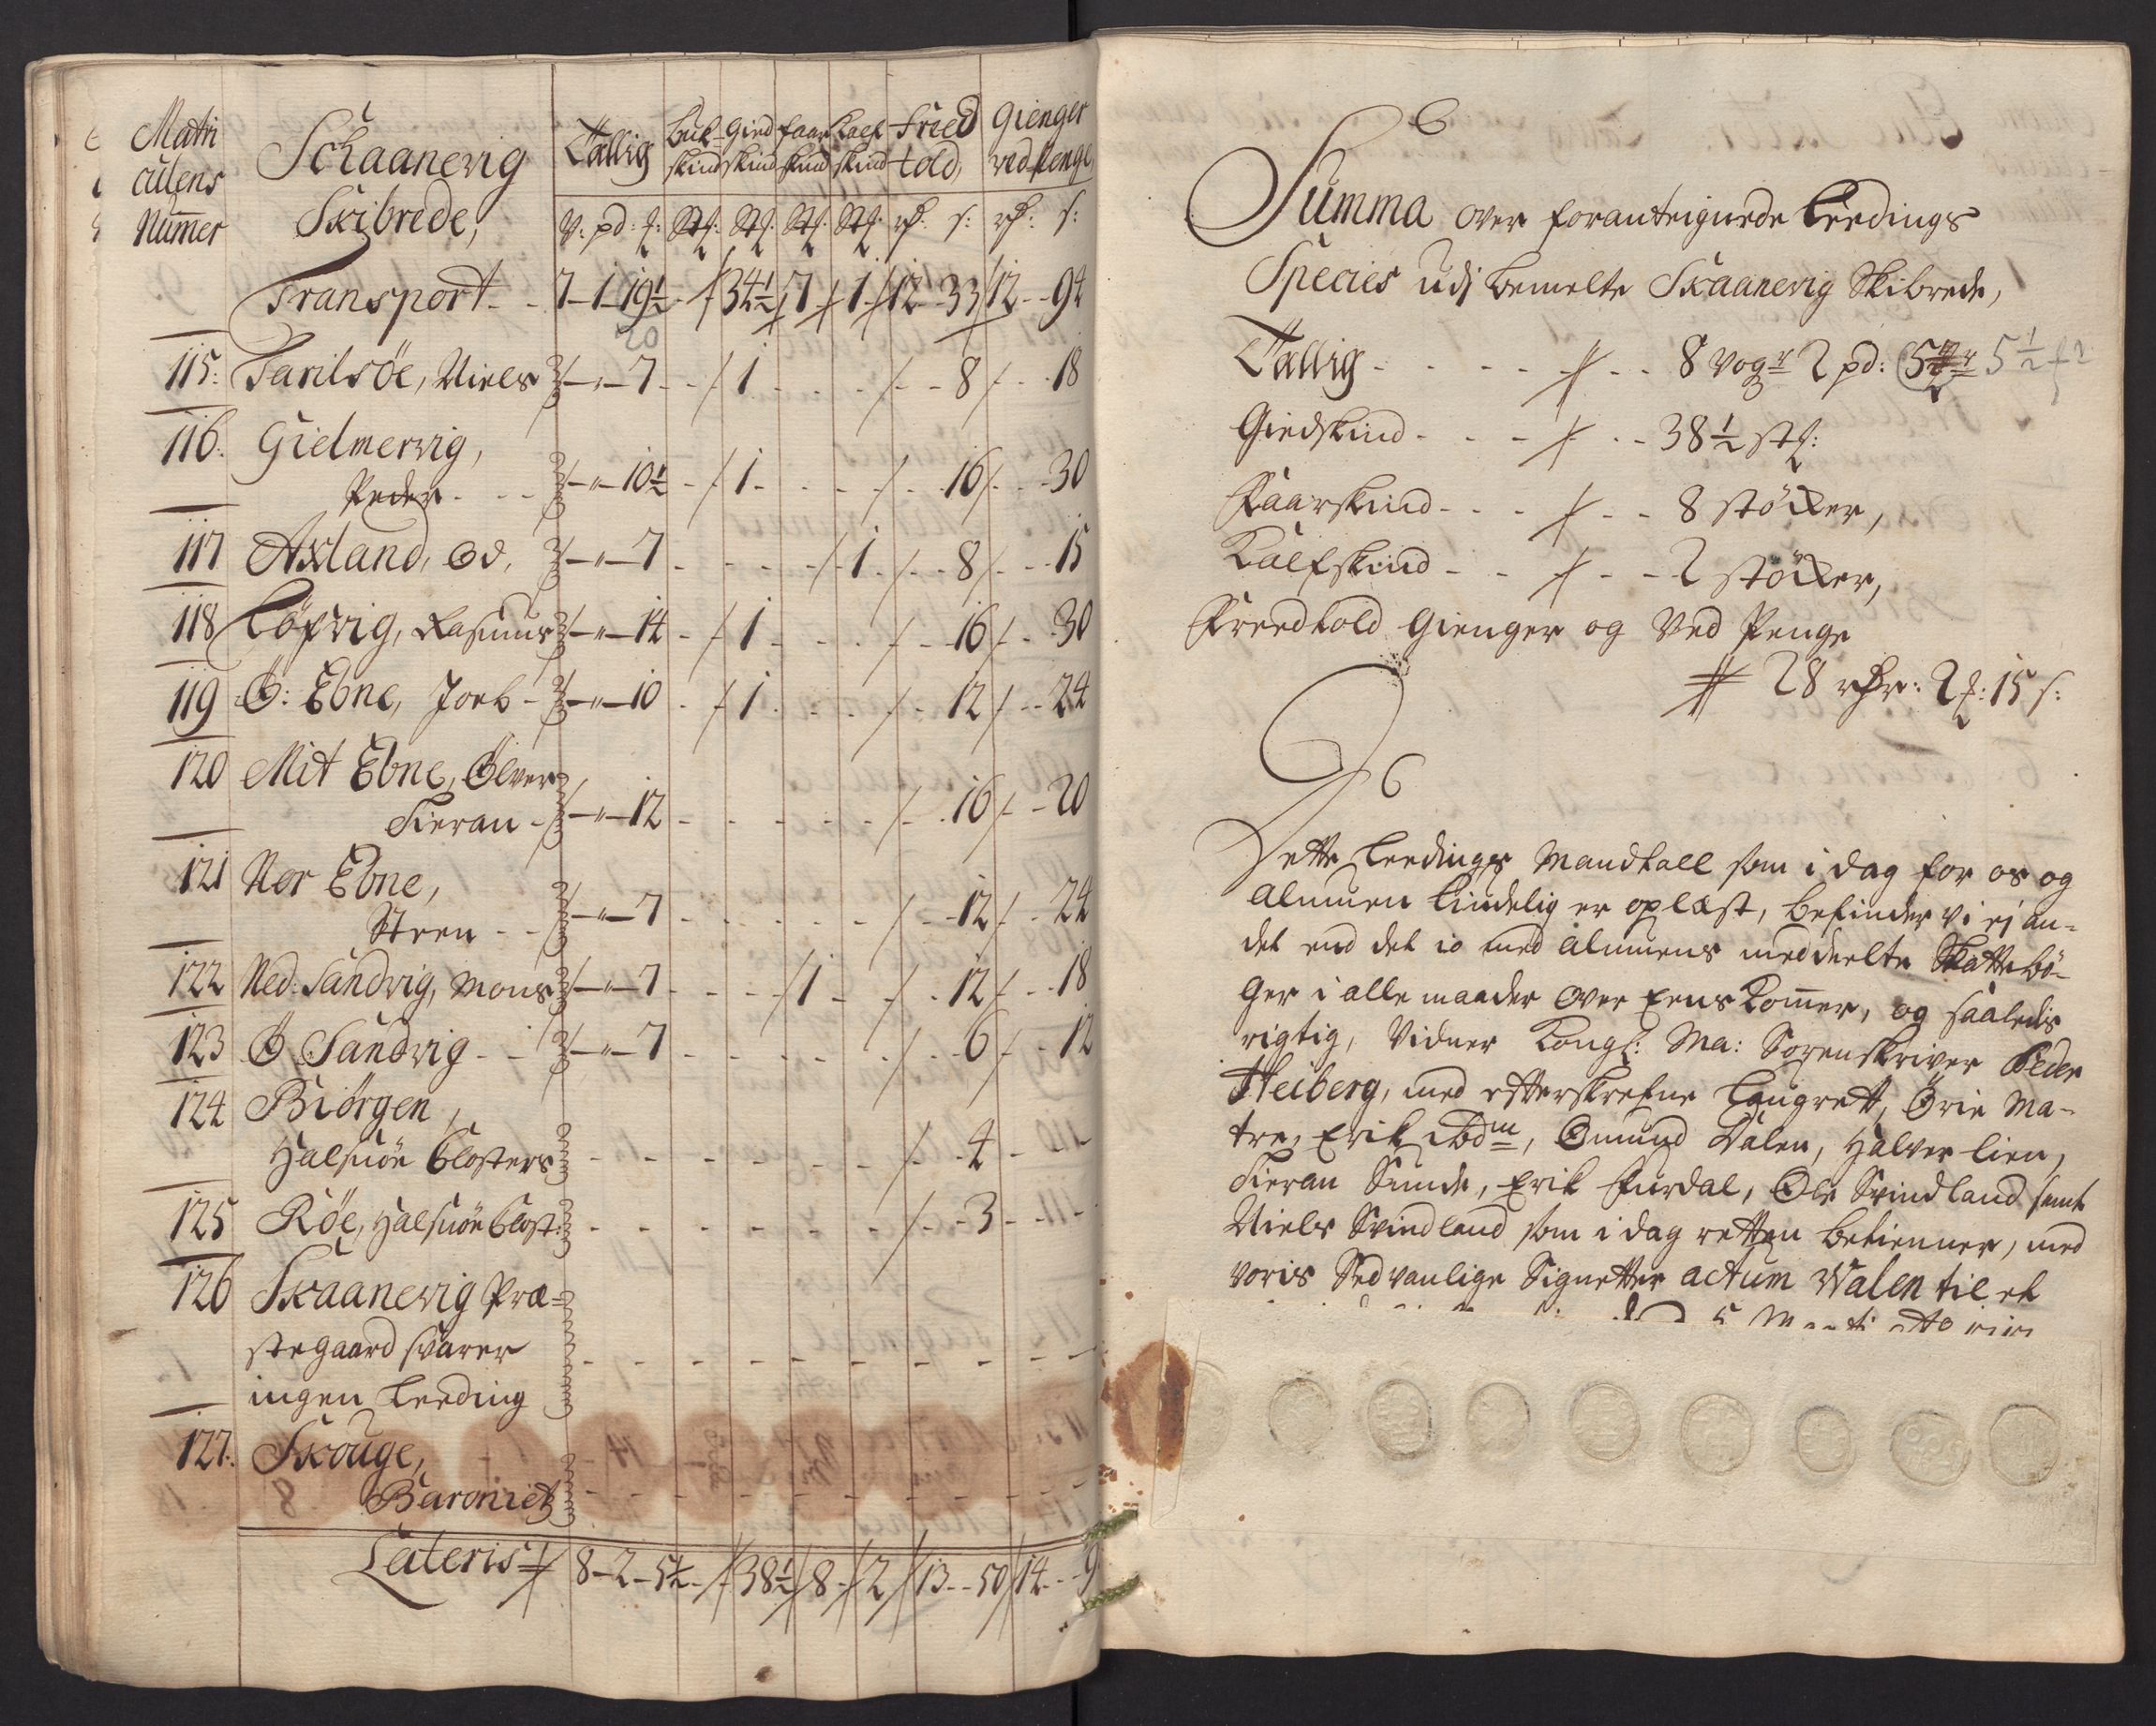 Matri
culens
Nummer
Schaanevig
Skibrede,
Tallig
Buk-
skind
Gied
skind
Faar
skind
Kalf
skind
Freed
told,
Gienger
ved penge
V: pd: Stk: Stk: Stk: Stk: s: s:
Transport - - 7 - 1 - 19½ - - 34½ 7 1 12 - 33 12 - - 94
20
115: Tarilsöe, Niels - " - 7 - - 1 - - - - 8 - - 18
116. Gielmervig,
Peder - - - " - 10½ - 1 - - - - 16 - - 30
117 Axland, Od, - " - 7 - - - - 1 - - 8 - - 15
118 Töfvig, Rasmus - " - 14 - 1 - - - - 16 - 30
119 Ö: Ebne, Joeb - - " - 10 - 1 - - - - 12 - - 24
120 Mit Ebne, Ölver
Sieran - - " - 12 - - - - - - 16 - 20
121 Nor Ebne,
Steen - - - " - 7 - - - - - - 12 - 24
122 Ned: Sandvig, Mons - " - 7 - - - 1 - - 12 - - 18
123 Ö Sandvig - - - " - 7 - - - - - - 6 - - 12
124 Biörgen,
Halsnöe Closters - - - - - - - 4 - -
125 Röe, Halsnöe Clost: - - - - - - - 3 - - -
126 Skaanevig Præ=
stegaard svarer - - - - - - - - -
ingen Leeding
127: Skouge,
Baroniet - - - - - - - - -
Lateris 8 - 2 - 5½ - 38½ 8 2 13 - - 50 14 - - 9
Summa over foranteignede Leedings
Species udj bemelte Skaanevig Skibrede,
Tallig - - - - - - 8 Vogr 2 pd: 5½
Giedskind - - - - - 38½ stk:
Faarskind - - - - - 8 stöcker,
Kalfskind - - - - - 2 stöcker,
Freedtold Gienger og Ved Penge
28 rdr: 2 : 15 s:
Dette Leedings Mandtall som i dag for os og
Almuen tindelig er oplæst, befinder vi ej an-
det end det jo med Almuens meddeelte Skattebö-
ger i alle maader over Eens Kommer, og saaledis
rigtig, Vidner Kongl: Ma: Sorenskriver Peder
Heiberg, med efterskrefne Laugrett, Örie Ma-
tre, Erik ibdm, Omund Valen, Halver lien,
Sieran Sunde, Erik Furdal, Ole Svindland samt
Niels Svindland som i dag retten betienner, med
voris Sedvanlige Signetter actum Walen til et